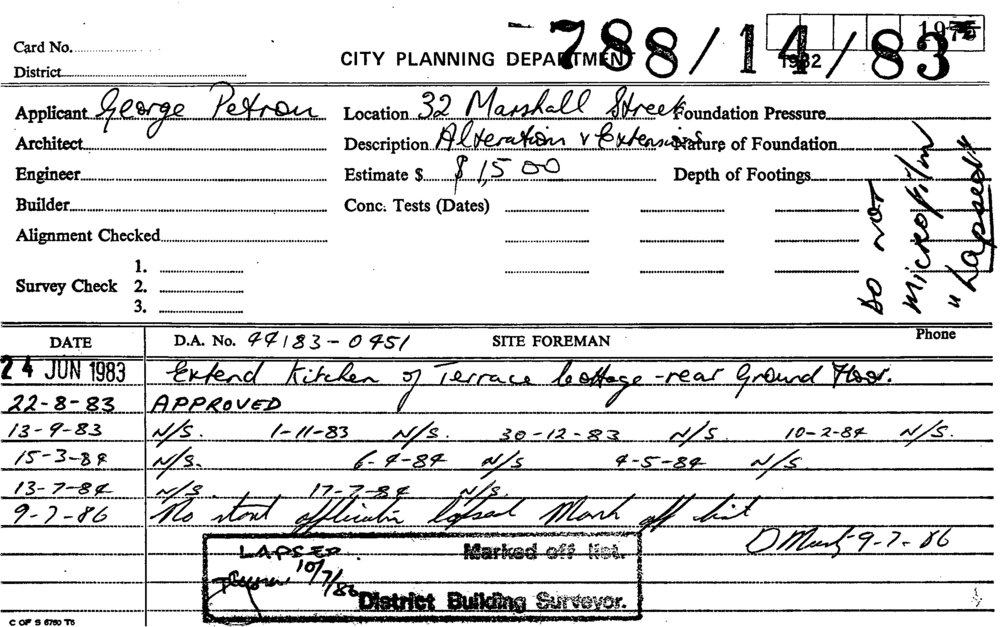 788/14/83
Card No.
CITY PLANNING DEPARTMENT
1982
District
Applicant George Petrou Location 32 Marshall Street Foundation Pressure
Architect Description Alteration & Extensions Nature of Foundation
Engineer Estimate $ $1,500 Depth of Footings
Builder Conc. Tests (Dates)
Alignment Checked
Survey Check 1.
2.
3.
Do not
microfilm
"Lapsed"
DATE D.A. No. 44183-0451 SITE FOREMAN Phone
24 JUN 1983 Extend Kitchen of Terrace Cottage - rear Ground Floor.
22-8-83 APPROVED
13-9-83 N/S. 1-11-83 N/S. 30-12-83 N/S. 10-2-84 N/S.
15-3-84 N/S. 6-4-84 N/S 4-5-84 N/S.
13-7-84 N/S. 17-7-84 N/S.
9-7-86 No start application lapsed Mark off list
9-7-86
LAPSED Marked off list.
10/7/86
District Building Surveyor.
C OF S 6760 T6